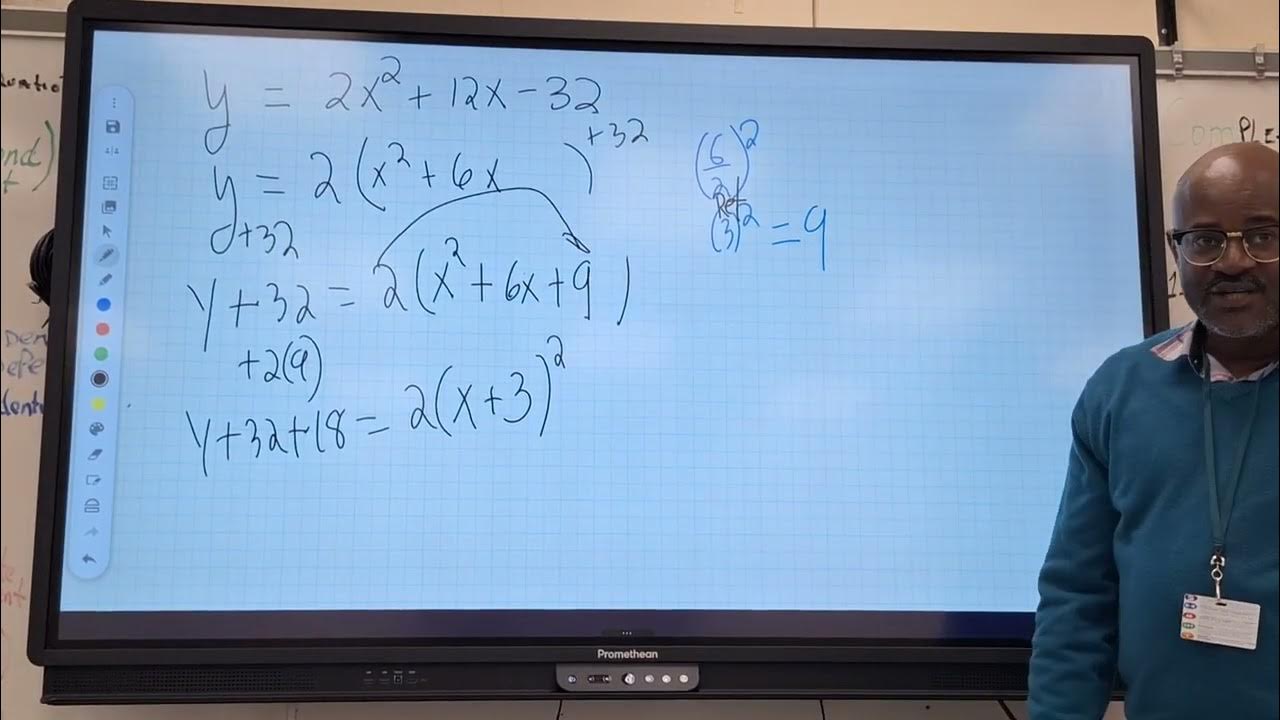 y = 2x² + 12x - 32
y = 2(x² + 6x    ) +32
+32
y + 32 = 2(x² + 6x + 9 )
+2(9)
y + 32 + 18 = 2(x + 3)²
(6/2)²
(3)² = 9
Promethean